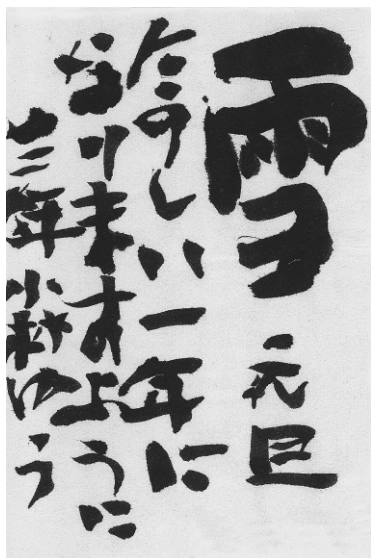 雪 元旦
たのしい一年に
なりますように
三年 小林ゆう